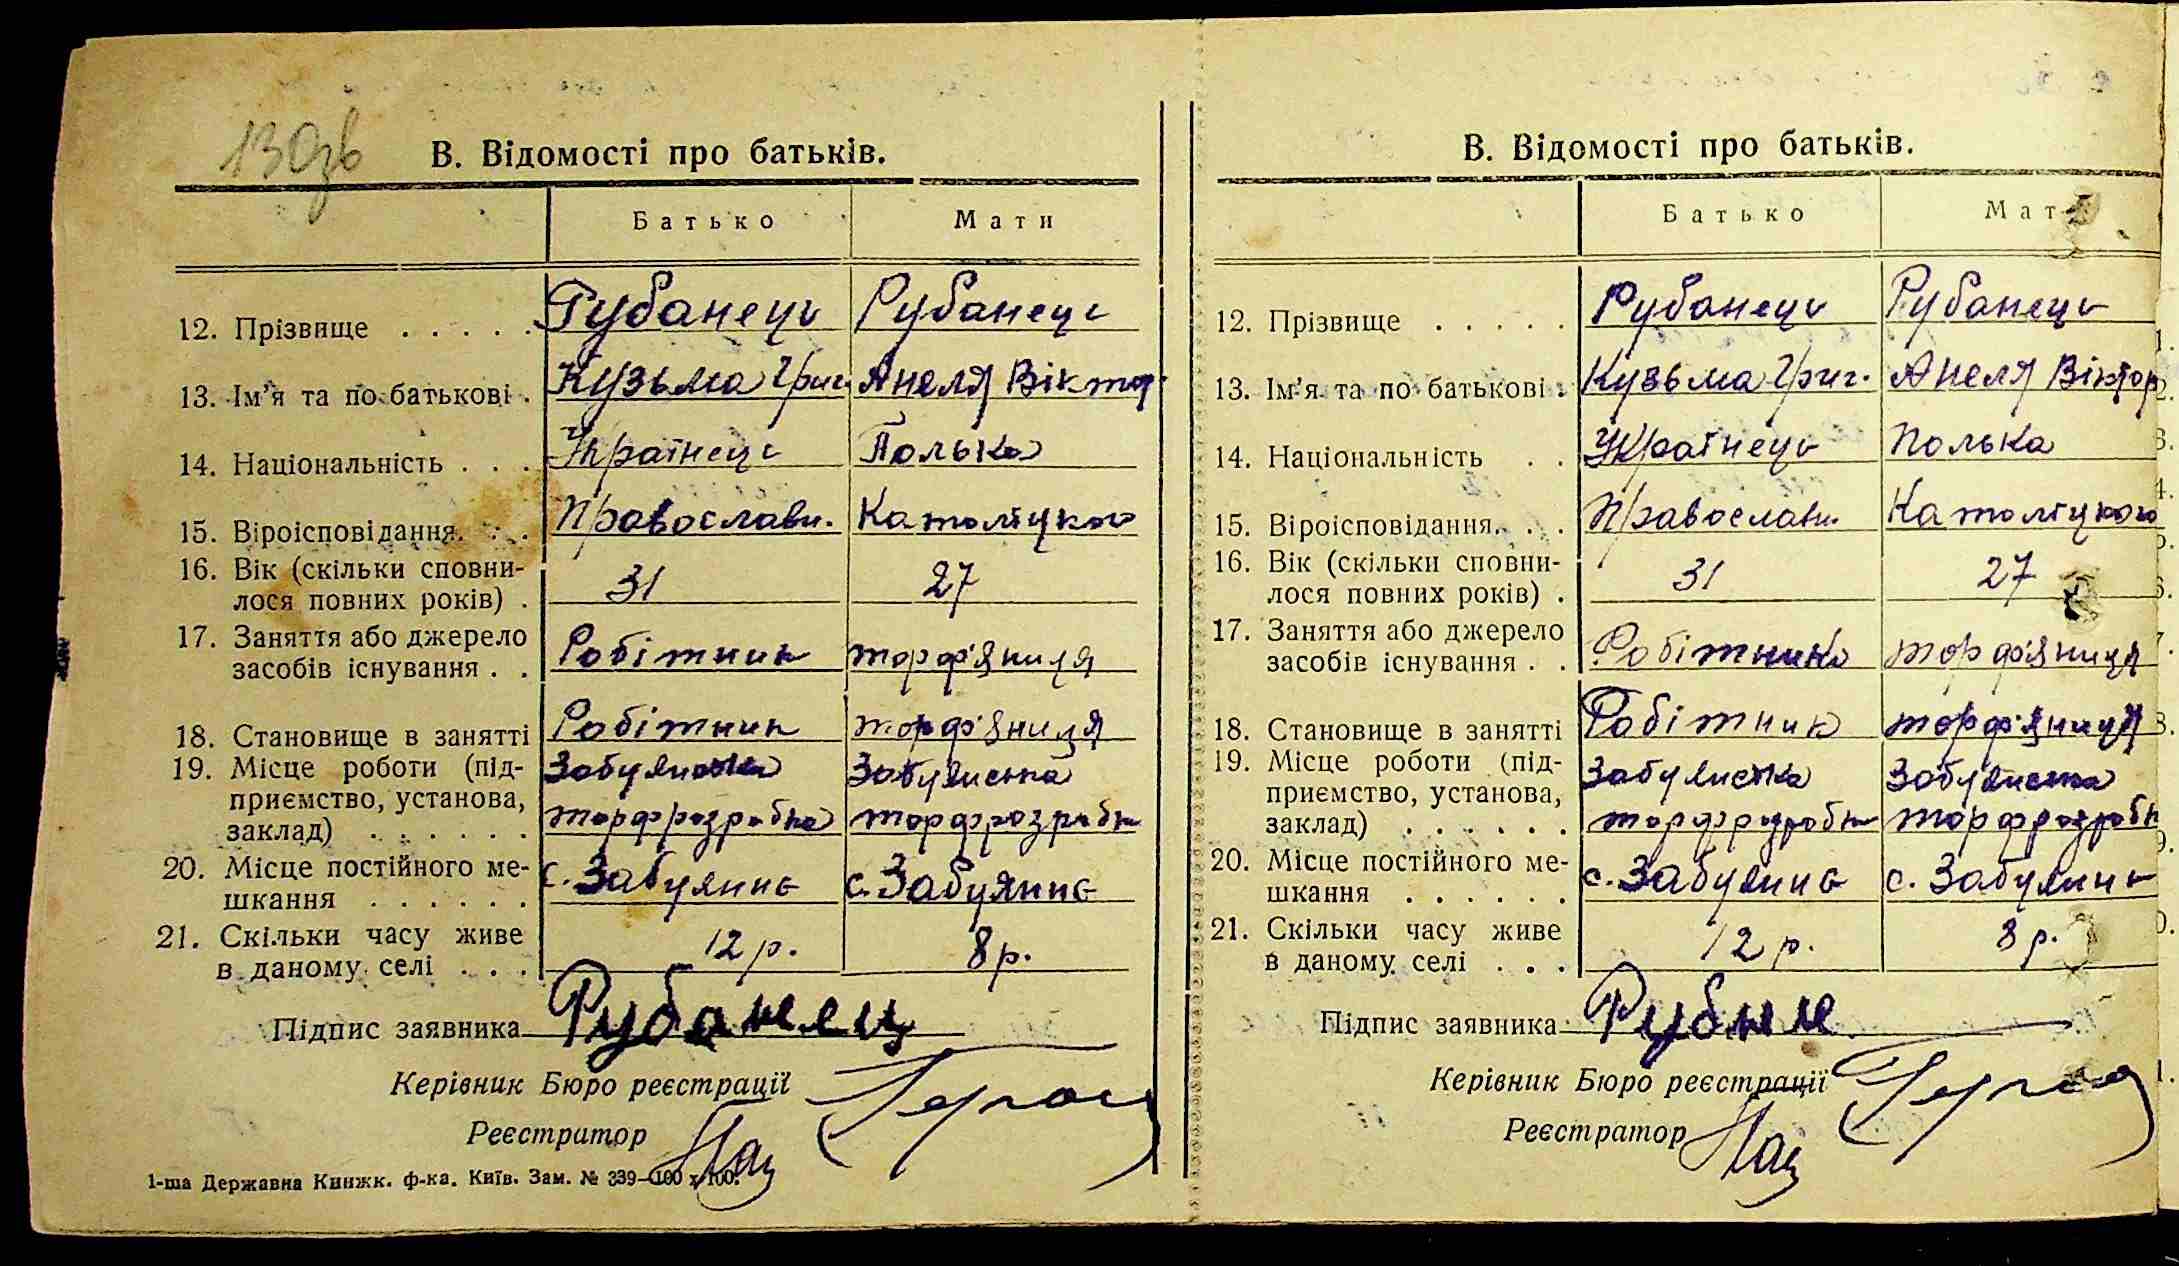 130зв
В. Відомості про батьків.
Батько Мати
12. Прізвище . . . . . Рубанець Рубанець
13. Ім'я та по батькові . Кузьма Григ. Анеля Віктор.
14. Національність . . . Українець Полька
15. Віроісповідання. . . Православн. Католіцького
16. Вік (скільки сповни-
лося повних років) . 31 27
17. Заняття або джерело
засобів існування . . Робітник торф'яниця
18. Становище в занятті Робітник торф'яниця
19. Місце роботи (під- Забуянська Забуянська
приємство, установа,
заклад) . . . . . . торфрозробка торфрозробк
20. Місце постійного ме-
шкання . . . . . . с. Забуяння с. Забуяння
21. Скільки часу живе
в даному селі . . . 12 р. 8 р.
Підпис заявника Рубанец
Керівник Бюро реєстрації
Реєстратор
1-ша Державна Книжк. ф-ка. Київ. Зам. № 339—100 х 100.
В. Відомості про батьків.
Батько Мат
12. Прізвище . . . . . Рубанець Рубанець
13. Ім'я та по батькові . Кузьма Григ. Анеля Віктор
14. Національність . . Українець Полька
15. Віроісповідання. . . Православн. Католіцького
16. Вік (скільки сповни-
лося повних років) . 31 27
17. Заняття або джерело
засобів існування . . Робітник торф'яниця
18. Становище в занятті Робітник торф'яниця
19. Місце роботи (під- Забуянська Забуянська
приємство, установа,
заклад) . . . . . . торфрозробк торфрозробк
20. Місце постійного ме-
шкання . . . . . . с. Забуяння с. Забуяння
21. Скільки часу живе
в даному селі . . . 12 р. 8 р.
Підпис заявника
Керівник Бюро реєстрації
Реєстратор